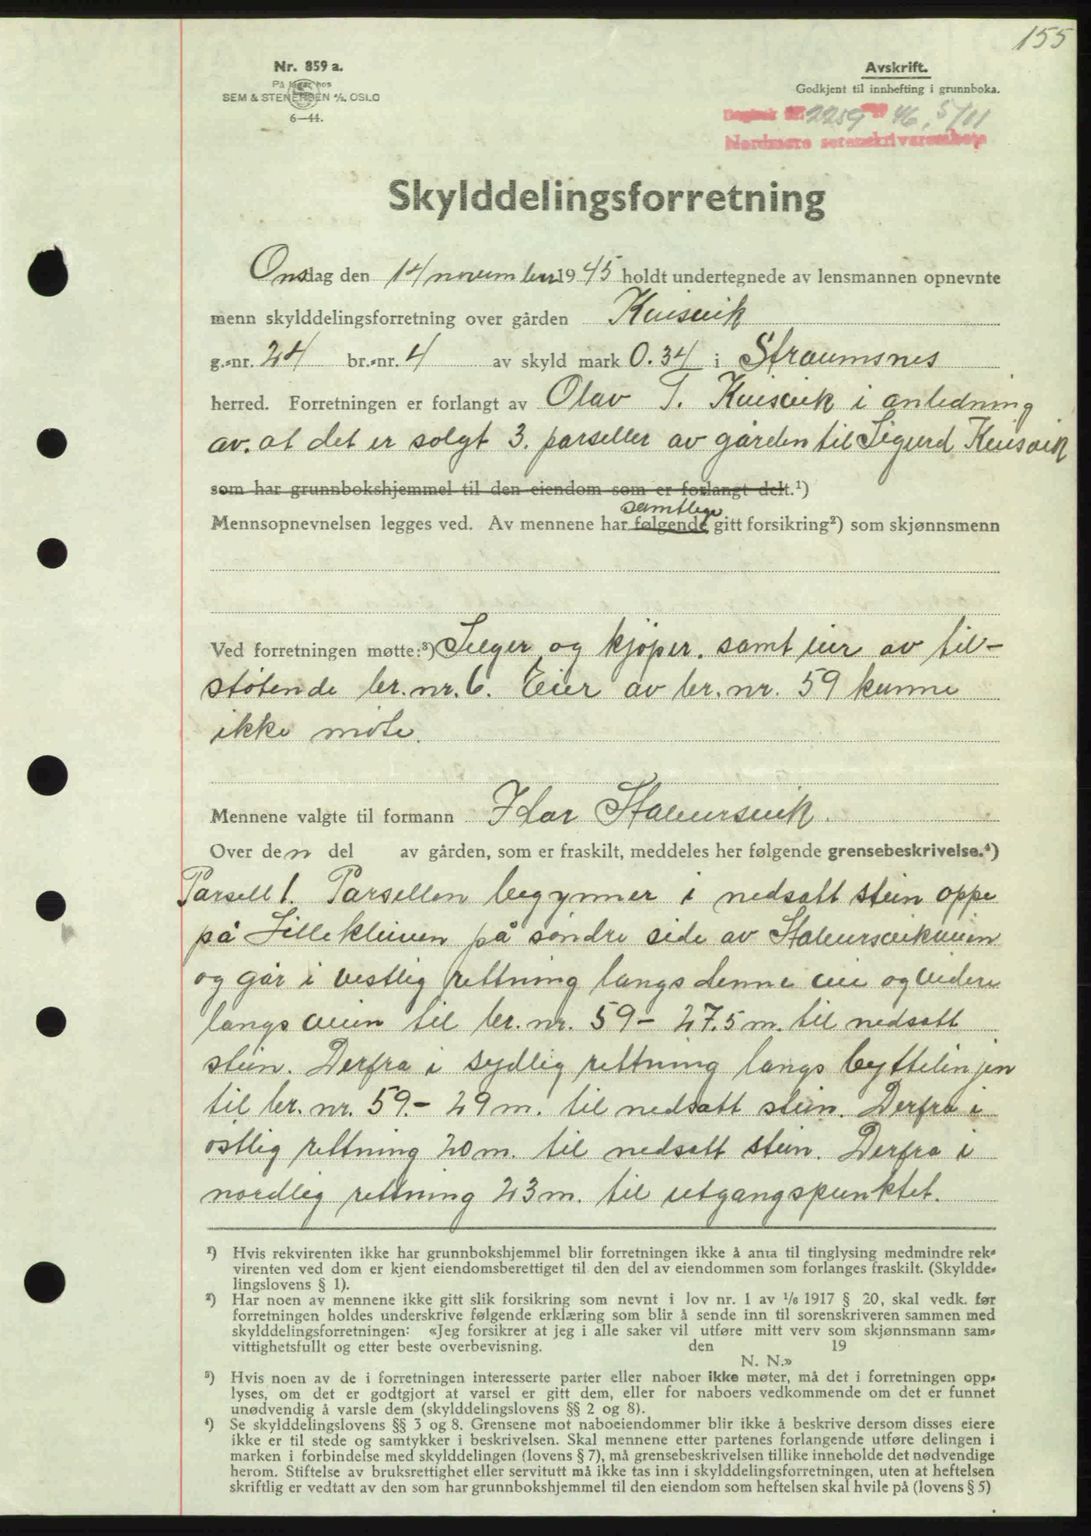 155
Nr. 859 a.
På lager hos
SEM & STENERSEN A/S, OSLO
6—44.
Avskrift.
Godkjent til innhefting i grunnboka.
Dagbok nr. 2259 19 46, 5/11
Nordmøre sorenskriverembete
Skylddelingsforretning
Onsdag den 14 november 1945 holdt undertegnede av lensmannen opnevnte
menn skylddelingsforretning over gården Kvisvik
g.-nr. 24 br.-nr. 4 av skyld mark 0.34 i Straumsnes
herred. Forretningen er forlangt av Olav T. Kvisvik i anledning
av. at det er solgt 3. parseller av gården til Sigurd Kvisvik
som har grunnbokshjemmel til den eiendom som er forlangt delt.¹)
samtlege
Mennsopnevnelsen legges ved. Av mennene har følgende gitt forsikring²) som skjønnsmenn
Ved forretningen møtte:³) Selger og kjøper. samt eier av til-
støtende br. nr. 6. Eier av br. nr. 59 kunne
ikke møte.
Mennene valgte til formann Idar Stalvursvik.
Over den del av gården, som er fraskilt, meddeles her følgende grensebeskrivelse.⁴)
Parsell 1. Parsellen begynner i nedsatt stein oppe
på Lillekleiven på søndre side av Stalvursvikveien
og går i vestlig rettning langs denne vei og videre
langs veien til br. nr. 59 – 27.5 m. til nedsatt
stein. Derfra i sydlig rettning langs byttelinjen
til br. nr. 59. – 29 m. til nedsatt stein. Derfra i
østlig rettning 20 m. til nedsatt stein. Derfra i
nordlig rettning 23 m. til utgangspunktet.
¹) Hvis rekvirenten ikke har grunnbokshjemmel blir forretningen ikke å anta til tinglysing medmindre rek-
virenten ved dom er kjent eiendomsberettiget til den del av eiendommen som forlanges fraskilt. (Skyldde-
lingslovens § 1).
²) Har noen av mennene ikke gitt slik forsikring som nevnt i lov nr. 1 av ¹/₆ 1917 § 20, skal vedk. før
forretningen holdes underskrive følgende erklæring som blir å sende inn til sorenskriveren sammen med
skylddelingsforretningen: «Jeg forsikrer at jeg i alle saker vil utføre mitt verv som skjønnsmann sam-
vittighetsfullt og etter beste overbevisning. den 19
N. N.»
³) Hvis noen av de i forretningen interesserte parter eller naboer ikke møter, må det i forretningen opp-
lyses, om det er godtgjort at varsel er gitt dem, eller for naboers vedkommende om det er funnet
unødvendig å varsle dem (skylddelingslovens §§ 2 og 8).
⁴) Se skylddelingslovens §§ 3 og 8. Grensene mot naboeiendommer blir ikke å beskrive dersom disses eiere
ikke er til stede og samtykker i beskrivelsen. Skal mennene etter partenes forlangende utføre delingen i
marken i forbindelse med skylddelingen (lovens § 7), må grensebeskrivelsen tillike inneholde det nødvendige
herom. Stiftelse av bruksrettighet eller servitutt må ikke tas inn i skylddelingsforretningen, uten at heftelsen
skriftlig er vedtatt av den som har grunnbokshjemmel til den eiendom som heftelsen skal hvile på (lovens § 5)